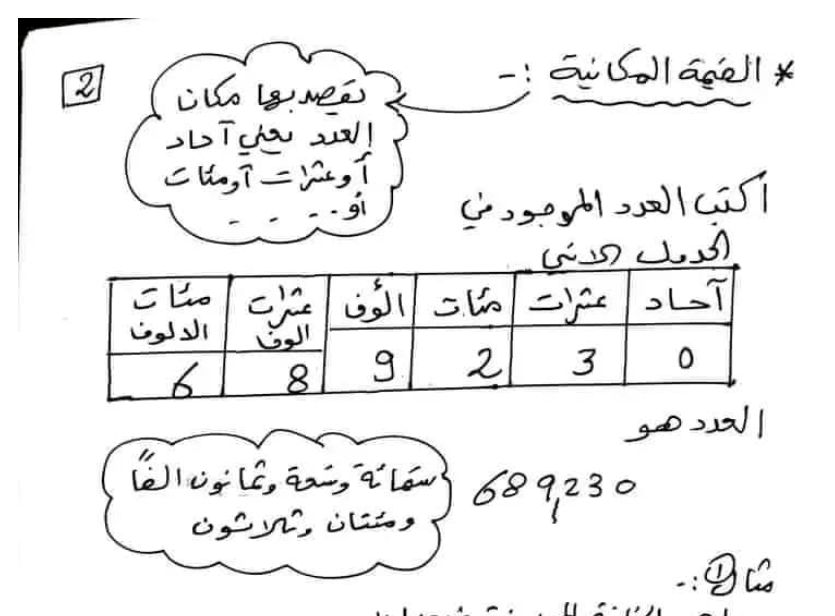 * القيمة المكانية :-
2
نقصد بها مكان
العدد يعني آحاد
أو عشرات أو مئات
أو . . . .
اكتب العدد الموجود في
الجدول الاتي
آحاد عشرات مئات ألوف عشرات الوف مئات الالوف
0 3 2 9 8 6
العدد هو
689,230
ستمائة وتسعة وثمانون الفاً
ومئتان وثلاثون
مثال 1 :-